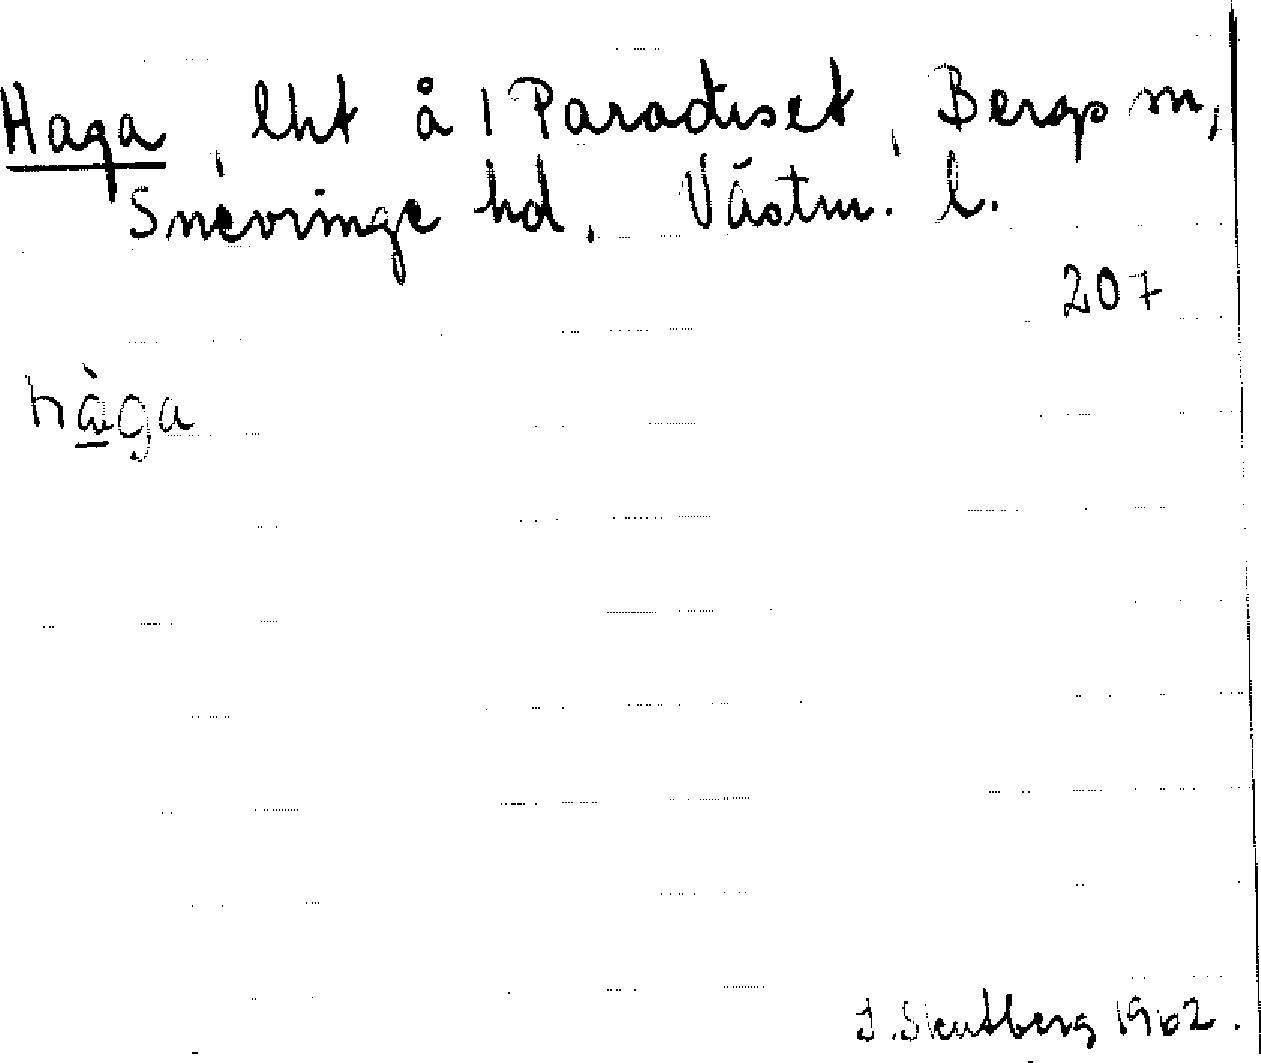 Haga, lht å 1 Paradiset, Bergs sn,
Snevringe hd, Västm. l.
207
hàga
J. Skutberg 1962.